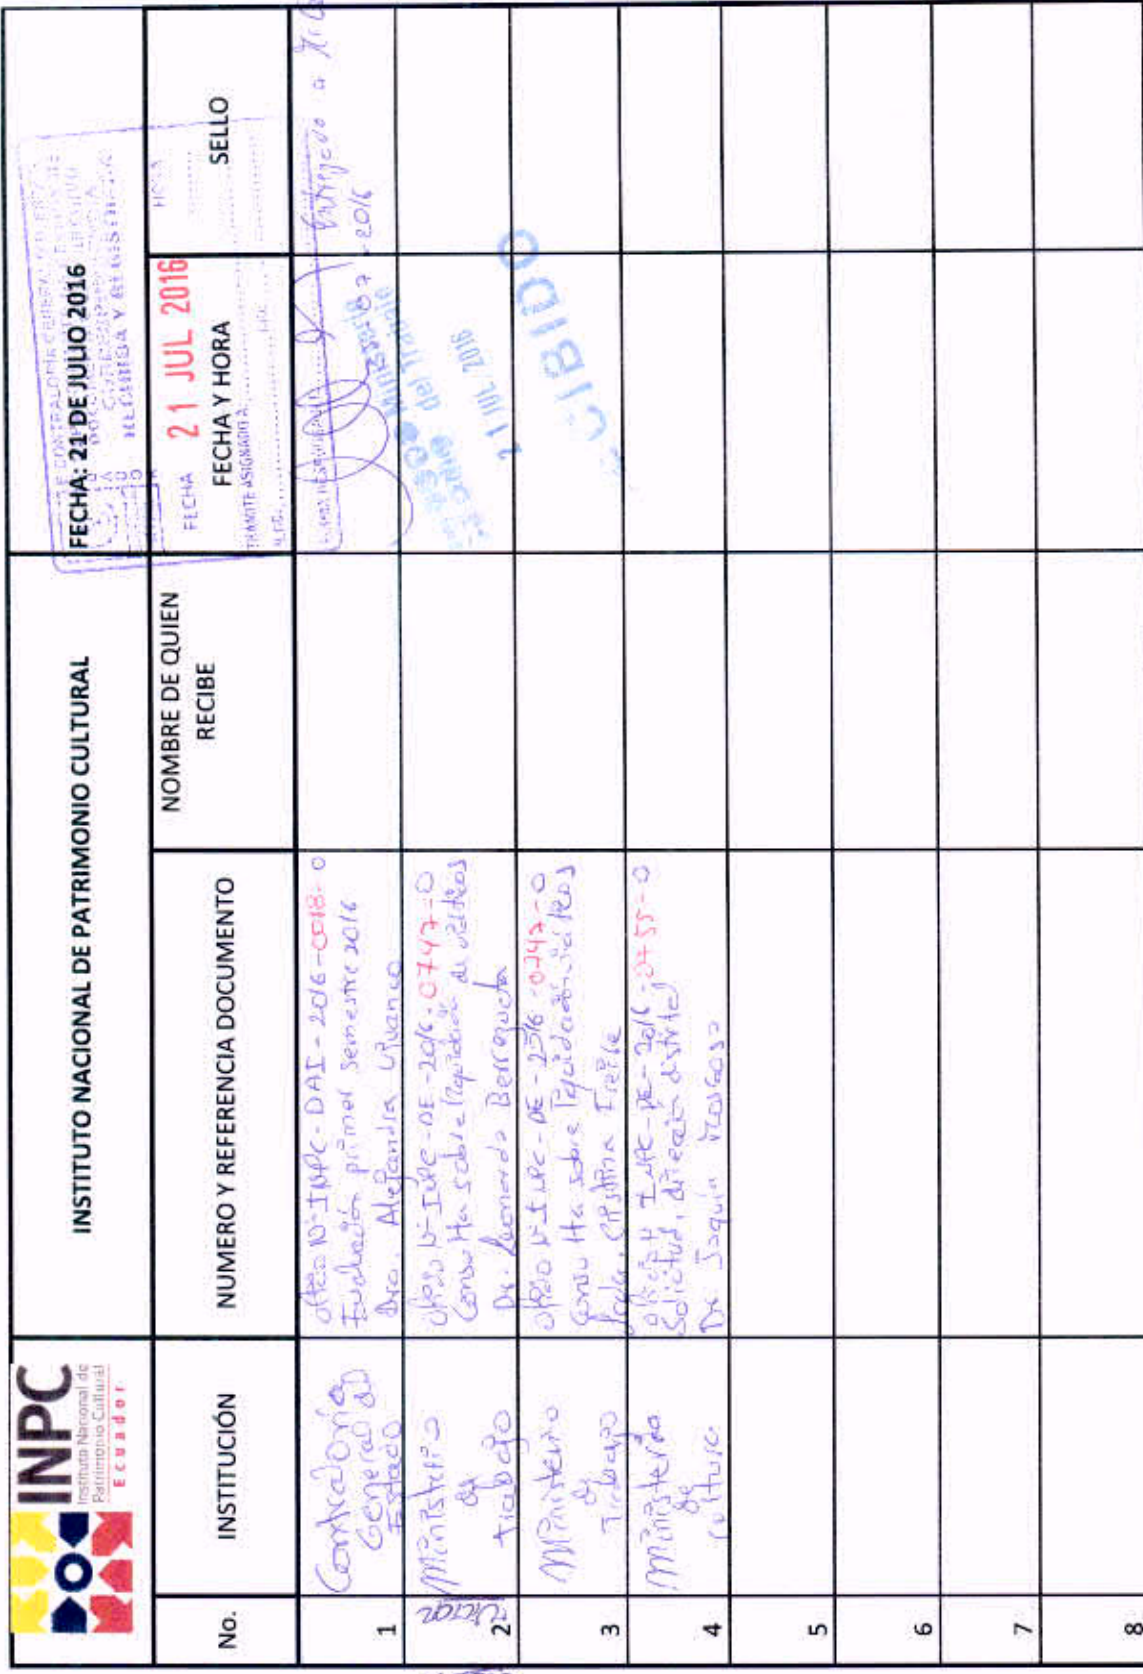 INPC
Instituto Nacional de
Patrimonio Cultural
Ecuador
INSTITUTO NACIONAL DE PATRIMONIO CULTURAL
FECHA: 21 DE JULIO 2016
No.
INSTITUCIÓN
NUMERO Y REFERENCIA DOCUMENTO
NOMBRE DE QUIEN
RECIBE
FECHA Y HORA
SELLO
FECHA 21 JUL 2016
HORA
TRAMITE ASIGNADO A:
1
Contraloría
General del
Estado
Oficio N° INPC-DAI-2016-0018-O
Evaluación primer semestre 2016
Dra. Alejandra Vivanco
Entregado a
2016
2
Ministerio
de
trabajo
Oficio N° INPC-DE-2016-0747-O
Consulta sobre liquidación de viáticos
Dr. Leonardo Berrezueta
Ministerio
del Trabajo
21 JUL. 2016
CIBIDO
3
Ministerio
de
Trabajo
Oficio N° INPC-DE-2016-0747-O
Consulta sobre liquidación viáticos
Cristina Freile
4
Ministerio
de
Cultura
Oficio N° INPC-DE-2016-0755-O
Solicitud, dirección distrital
Dr Joaquín
5
6
7
8